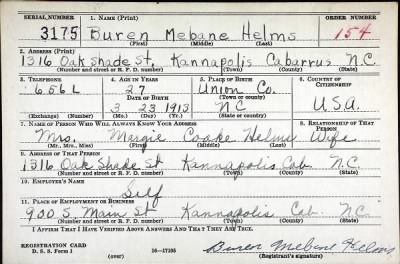 SERIAL NUMBER 1. NAME (Print) ORDER NUMBER
3175 Buren Mebane Helms 154
(First) (Middle) (Last)
2. ADDRESS (Print)
1316 Oak Shade St, Kannapolis Cabarrus N.C.
(Number and street or R. F. D. number) (Town) (County) (State)
3. TELEPHONE 4. AGE IN YEARS 5. PLACE OF BIRTH 6. COUNTRY OF CITIZENSHIP
656L 27 Union Co.
DATE OF BIRTH (Town or county)
3 23 1913 NC U.S.A.
(Exchange) (Number) (Mo.) (Day) (Yr.) (State or country)
7. NAME OF PERSON WHO WILL ALWAYS KNOW YOUR ADDRESS 8. RELATIONSHIP OF THAT PERSON
Mrs. Margie Cooke Helms Wife
(Mr., Mrs., Miss) (First) (Middle) (Last)
9. ADDRESS OF THAT PERSON
1316 Oak Shade St Kannapolis Cab. N.C.
(Number and street or R. F. D. number) (Town) (County) (State)
10. EMPLOYER'S NAME
Self
11. PLACE OF EMPLOYMENT OR BUSINESS
900 S Main St Kannapolis Cab. N.C.
(Number and street or R. F. D. number) (Town) (County) (State)
I AFFIRM THAT I HAVE VERIFIED ABOVE ANSWERS AND THAT THEY ARE TRUE.
REGISTRATION CARD
D. S. S. Form 1 (over) 16—17105 Buren Mebane Helms
(Registrant's signature)